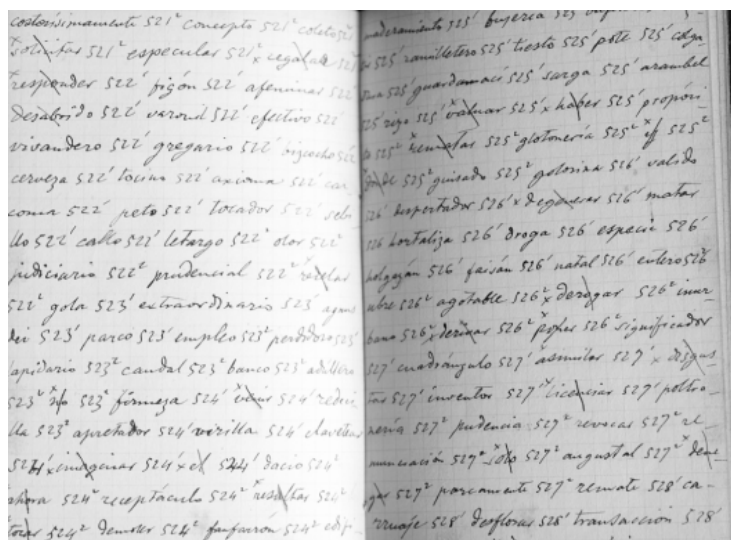 costosísimamente 521² concepto 521² coleto 521²
solicitar 521² especular 521² x regalar 521²
responder 522' figón 522' afeminar 522'
desabrido 522' varonil 522' efectivo 522'
vivandero 522' gregario 522' bizcocho 522'
cerveza 522' tocino 522' axioma 522' car
coma 522' peto 522' tocador 522' sebi
llo 522' callo 522' letargo 522² olor 522²
judiciario 522² prudencial 522² recelar
522² gola 523' extraordinario 523' agnus
dei 523' parco 523' empleo 523² perdidoso 523'
apidario 523² caudal 523² banco 523² adillero
523² no 523² firmeza 524' venir 524' redeci
lla 523² apretador 524' virilla 524' clavetear
524' x imaginar 524' x el 524' dacio 524²
ahora 524² receptáculo 524² resultar 524²
tocar 524² demoler 524² fanfarrón 524² edif
maderamiento 525' bujería 525
525' ramilletero 525' tiesto 525' pote 525' colga
dura 525' guardamací 525' sarga 525' arambel
525' rizo 525' valuar 525' x haber 525' propósi
to 525² rematar 525² glotonería 525² x if 525²
donde 525² guisado 525² golosina 526' valido
526' despertador 526' x degenerar 526' matar
526 hortaliza 526' droga 526' especie 526'
holgazán 526' faisán 526' natal 526' entero 526²
ubre 526² agotable 526² x derogar 526² inur
bano 526² x derivar 526² poner 526² significador
527' cuadrángulo 527' asimilar 527' x disgus
tar 527' inventor 527' licenciar 527' poltro
nería 527² pudencia 527² revocar 527² re
nunciación 527² x solo 527² augustal 527² x dene
gar 527² parcamente 527² remate 528' ca
rruaje 528' desflorar 528' transacción 528'